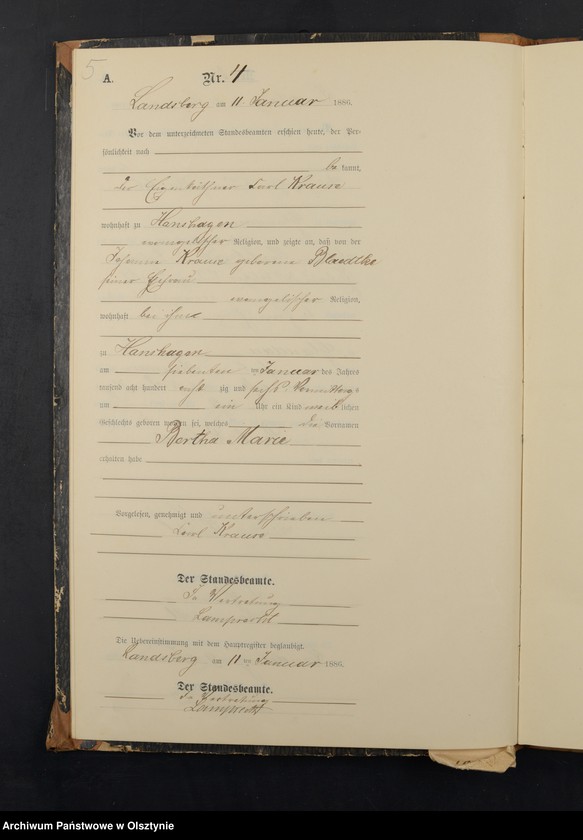 5
A.
Nr. 4
Landsberg am 11 Januar 1886.
Vor dem unterzeichneten Standesbeamten erschien heute, der Per-
sönlichkeit nach
be kannt,
der Eigenkäthner Carl Krause
wohnhaft zu Hanshagen
evangelischer Religion, und zeigte an, daß von der
Johanna Krause geborene
seiner Ehefrau
evangelischer Religion,
wohnhaft bei ihm
zu Hanshagen
am siebenten ten Januar des Jahres
tausend acht hundert acht zig und sechs Vormittags
um ein Uhr ein Kind weib lichen
Geschlechts geboren worden sei, welches die Vornamen
Bertha Marie
erhalten habe
Vorgelesen, genehmigt und unterschrieben
Carl Krause
Der Standesbeamte.
In Vertretung
Lamprecht
Die Uebereinstimmung mit dem Hauptregister beglaubigt.
Landsberg am 11 ten Januar 1886.
Der Standesbeamte.
In Vertretung
Lamprecht
Archiwum Państwowe w Olsztynie